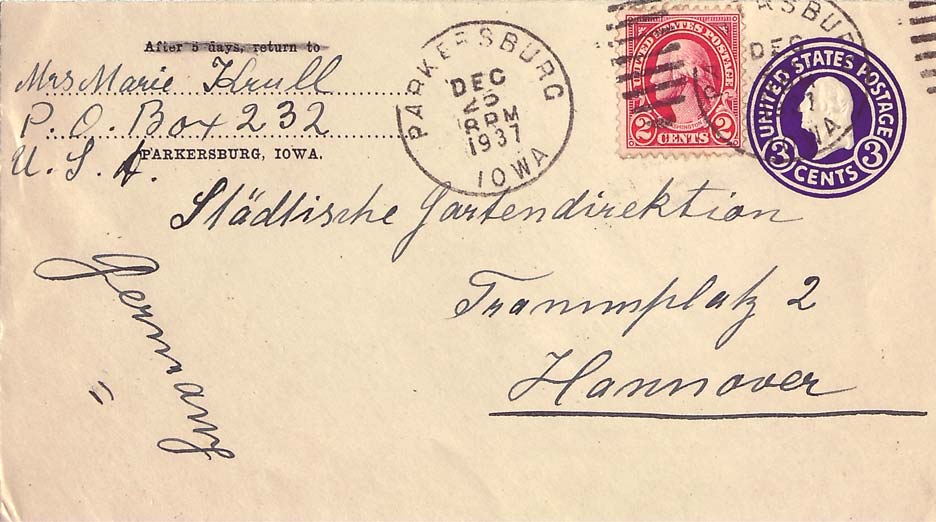 After 5 days, return to
Mrs Marie Krull
P. O. Box 232
PARKERSBURG, IOWA.
U. S. A.
PARKERSBURG
DEC
25
1937
IOWA
UNITED STATES POSTAGE
WASHINGTON
2 CENTS 2
UNITED STATES POSTAGE
3 CENTS 3
Städtische Gartendirektion
Trammplatz 2
Hannover
Germany